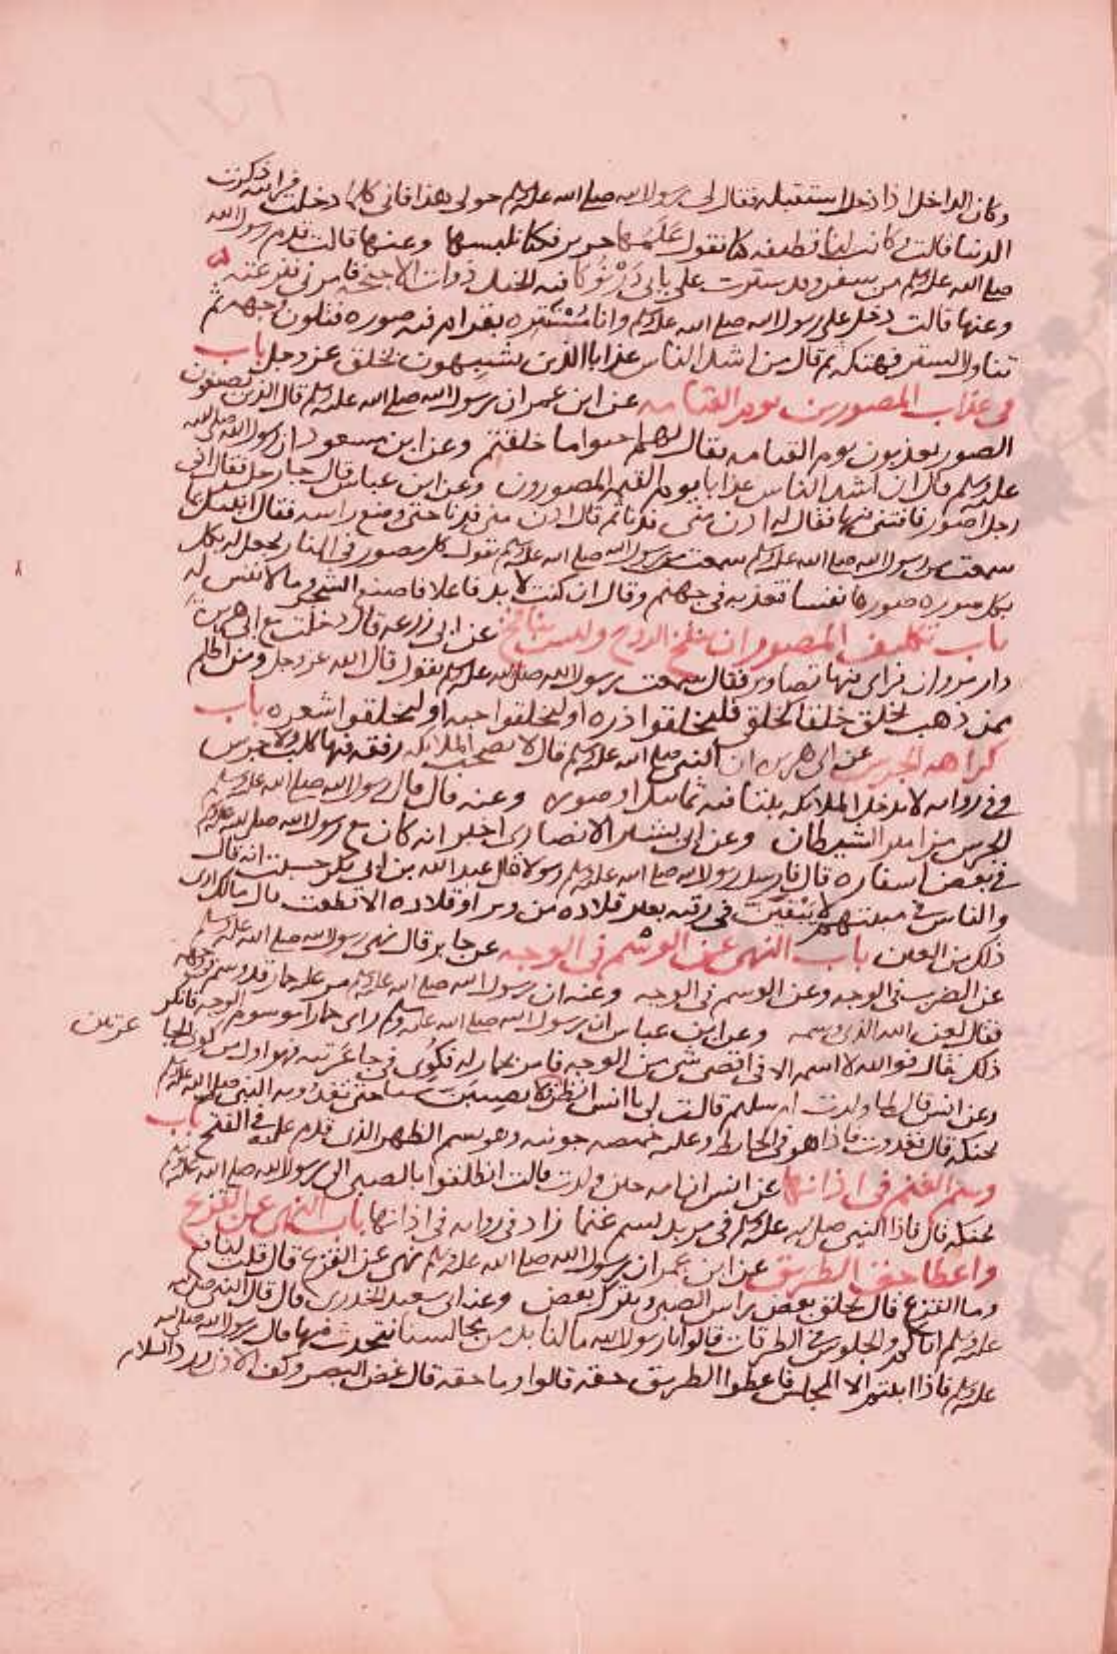 وكان الداخل اذا دخل استقبله فقال لى رسول الله صلى الله عليه وسلم حولى هذا فانى كلما دخلت فرايته ذكرت
الدنيا قالت وكانت لنا قطيفه كنا نقول علمها حرير فكنا نلبسها وعنها قالت قدم رسول الله
صلى الله عليه وسلم من سفر وقد سترت على بابى درنوكا فيه الخيل ذوات الاجنحه فامرنى فنزعته
وعنها قالت دخل على رسول الله صلى الله عليه وسلم وانا متستره بقرام فيه صوره فتلون وجهه ثم
تناول الستر فهتكه ثم قال من اشد الناس عذابا الذين يشبهون بخلق عز وجل باب
فى عذاب المصورين يوم القيامه عن ابن عمر ان رسول الله صلى الله عليه وسلم قال الذين يصنعون
الصور يعذبون يوم القيامه يقال لهم احيوا ما خلقتم وعن ابن مسعود ان رسول الله صلى الله
عليه وسلم قال ان اشد الناس عذابا يوم القيمه المصورون وعن ابن عباس قال جا رجل فقال انى
رجل اصور فافتنى فيها فقال له ادن منى فدنا ثم قال ادن منى فدنا حتى وضع راسه فقال انبئك بما
سمعت من رسول الله صلى الله عليه وسلم سمعت رسول الله صلى الله عليه وسلم يقول كل مصور فى النار يجعل له بكل
بكل صوره صورها نفسا تعذبه فى جهنم وقال ان كنت لا بد فاعلا فاصنع الشجر وما لا نفس له
باب تكليف المصور ان ينفخ الروح وليس بنافخ عن ابى زرعه قال دخلت مع ابى هريرة
دار مروان فراى فيها تصاوير فقال سمعت رسول الله صلى الله عليه وسلم يقول قال الله عز وجل ومن اظلم
ممن ذهب يخلق خلقا كخلقى فليخلقوا ذره او ليخلقوا حبه او ليخلقوا شعره باب
كراهه الجرس عن ابى هريره ان النبى صلى الله عليه وسلم قال لا تصحب الملائكه رفقه فيها كلب ولا جرس
وفى روايه لا تدخل الملائكه بيتا فيه تماثيل او صوره وعنه قال قال رسول الله صلى الله عليه وسلم
الجرس مزامير الشيطان وعن ابى بشير الانصارى اخبر انه كان مع رسول الله صلى الله عليه وسلم
فى بعض اسفاره قال فارسل رسول الله صلى الله عليه وسلم رسولا قال عبد الله بن ابى بكر حسبت انه قال
والناس فى مبيتهم لا يبقين فى رقبه بعير قلاده من وتر او قلاده الا قطعت قال مالك ارى
ذلك من العين باب النهى عن الوشم فى الوجه عن جابر قال نهى رسول الله صلى الله عليه وسلم
عن الضرب فى الوجه وعن الوسم فى الوجه وعنه ان رسول الله صلى الله عليه وسلم مر عليه حمار قد وسم فى وجهه
فقال لعن الله الذى وسمه وعن ابن عباس ان رسول الله صلى الله عليه وسلم راى حمارا موسوم الوجه فانكر
ذلك فقال فوالله لا اسمه الا فى اقصى شى من الوجه فامر بحمار له فكوى فى جاعرتيه فهو اول من كوى الجا
عرتين
وعن انس قال لما ولدت ام سليم قالت لى يا انس انظر لا يصيبن شيا حتى تغدو به النبى صلى الله عليه وسلم
يحنكه قال فغدوت فاذا هو فى الحايط وعليه خميصه جونيه وهو يسم الظهر الذى قدم عليه فى الفتح باب
وسم الغنم فى اذانها عن انس ان امه حين ولدت قالت انطلقوا بالصبى الى رسول الله صلى الله عليه وسلم
يحنكه قال فاذا النبى صلى الله عليه وسلم فى مربد يسم غنما زاد فى روايه فى اذانها باب النهى عن القزع
واعطا حق الطريق عن ابن عمر ان رسول الله صلى الله عليه وسلم نهى عن القزع قال قلت لنافع
وما القزع قال يحلق بعض راس الصبى ويترك بعض وعن ابى سعيد الخدرى قال قال النبى صلى الله
عليه وسلم اياكم والجلوس فى الطرقات قالوا يا رسول الله ما لنا بد من مجالسنا نتحدث فيها قال رسول الله صلى الله
عليه وسلم فاذا ابيتم الا المجلس فاعطوا الطريق حقه قالوا وما حقه قال غض البصر وكف الاذى ورد السلام